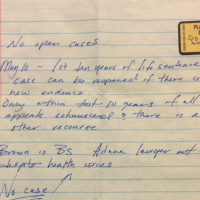 No open cases
May 10 - 1st ten years of life sentence
case can be reopened if there is
new evidence
Only within first 10 years of all
appeals exhausted & there is a
other recourse
Brown is BS Adams lawyer out
despite health issues
No case